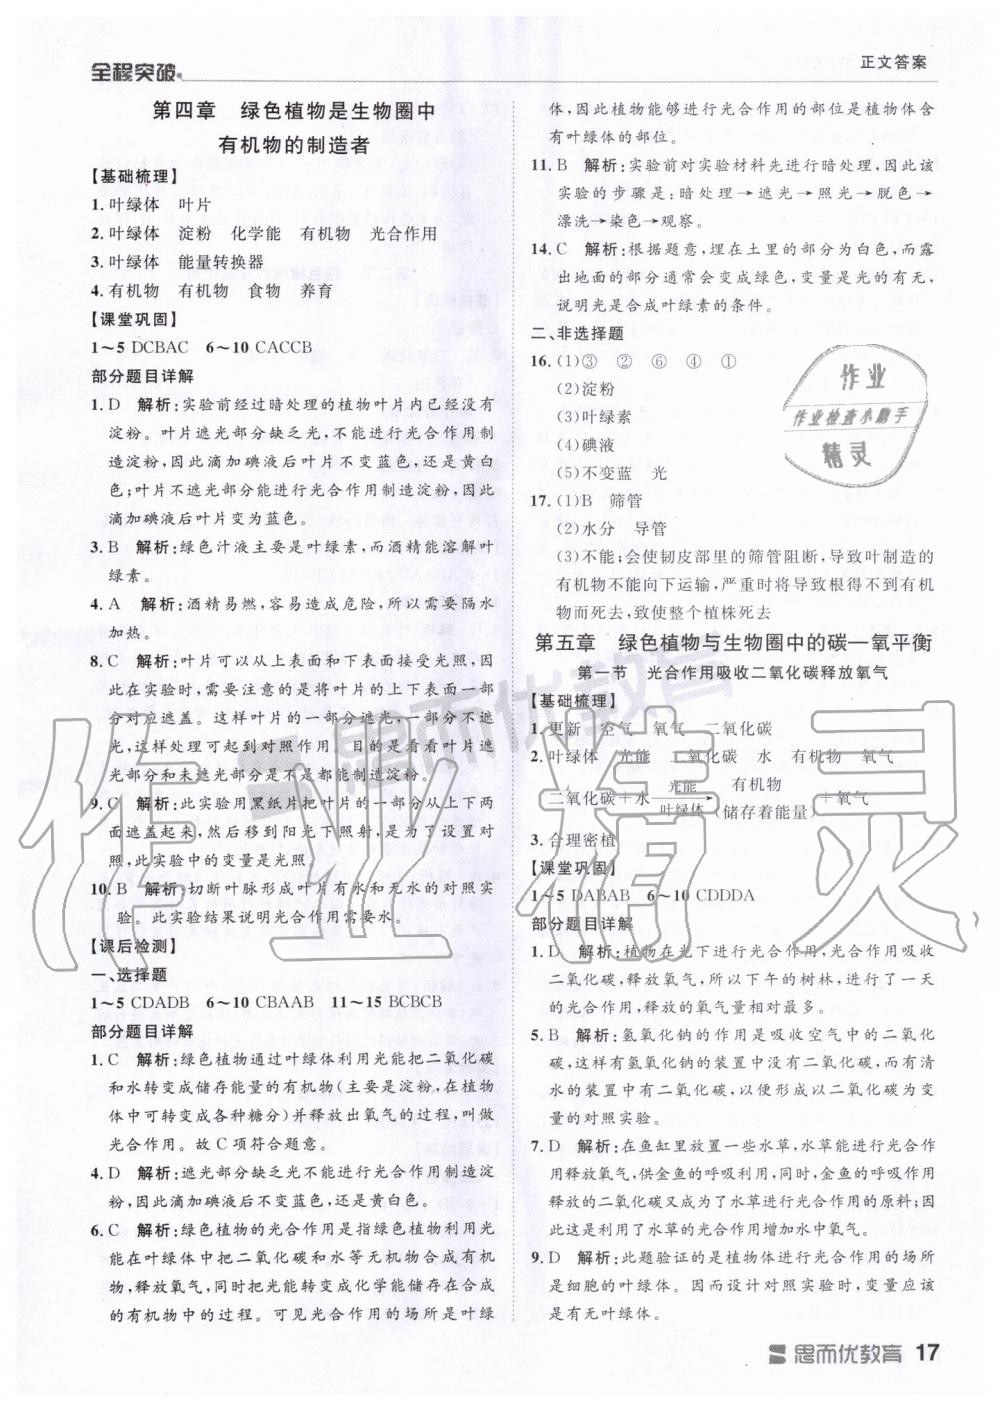 全程突破
正文答案
第四章 绿色植物是生物圈中
有机物的制造者
【基础梳理】
1. 叶绿体 叶片
2. 叶绿体 淀粉 化学能 有机物 光合作用
3. 叶绿体 能量转换器
4. 有机物 有机物 食物 养育
【课堂巩固】
1～5 DCBAC 6～10 CACCB
部分题目详解
1. D 解析:实验前经过暗处理的植物叶片内已经没有
淀粉。叶片遮光部分缺乏光,不能进行光合作用制
造淀粉,因此滴加碘液后叶片不变蓝色,还是黄白
色;叶片不遮光部分能进行光合作用制造淀粉,因此
滴加碘液后叶片变为蓝色。
3. B 解析:绿色汁液主要是叶绿素,而酒精能溶解叶
绿素。
4. A 解析:酒精易燃,容易造成危险,所以需要隔水
加热。
8. C 解析:叶片可以从上表面和下表面接受光照,因
此在实验时,需要注意的是将叶片的上下表面一部
分对应遮盖。这样叶片的一部分遮光,一部分不遮
光,这样处理可起到对照作用。目的是看看叶片遮
光部分和未遮光部分是不是都能制造淀粉。
9. C 解析:此实验用黑纸片把叶片的一部分从上下两
面遮盖起来,然后移到阳光下照射,是为了设置对
照,此实验中的变量是光照。
10. B 解析:切断叶脉形成叶片有水和无水的对照实
验。此实验结果说明光合作用需要水。
【课后检测】
一、选择题
1～5 CDADB 6～10 CBAAB 11～15 BCBCB
部分题目详解
1. C 解析:绿色植物通过叶绿体利用光能把二氧化碳
和水转变成储存能量的有机物(主要是淀粉,在植物
体中可转变成各种糖分)并释放出氧气的过程,叫做
光合作用。故 C 项符合题意。
4. D 解析:遮光部分缺乏光不能进行光合作用制造淀
粉,因此滴加碘液后不变蓝色,还是黄白色。
6. C 解析:绿色植物的光合作用是指绿色植物利用光
能在叶绿体中把二氧化碳和水等无机物合成有机
物,释放氧气,同时把光能转变成化学能储存在合成
的有机物中的过程。可见光合作用的场所是叶绿
体,因此植物能够进行光合作用的部位是植物体含
有叶绿体的部位。
11. B 解析:实验前对实验材料先进行暗处理,因此该
实验的步骤是:暗处理→遮光→照光→脱色→
漂洗→染色→观察。
14. C 解析:根据题意,埋在土里的部分为白色,而露
出地面的部分通常会变成绿色,变量是光的有无,
说明光是合成叶绿素的条件。
二、非选择题
16. (1)③ ② ⑥ ④ ①
(2)淀粉
(3)叶绿素
(4)碘液
(5)不变蓝 光
17. (1)B 筛管
(2)水分 导管
(3)不能;会使韧皮部里的筛管阻断,导致叶制造的
有机物不能向下运输,严重时将导致根得不到有机
物而死去,致使整个植株死去
第五章 绿色植物与生物圈中的碳—氧平衡
第一节 光合作用吸收二氧化碳释放氧气
【基础梳理】
1. 更新 空气 氧气 二氧化碳
2. 叶绿体 光能 二氧化碳 水 有机物 氧气
二氧化碳＋水 光能→叶绿体 有机物(储存着能量)＋氧气
3. 合理密植
【课堂巩固】
1～5 DABAB 6～10 CDDDA
部分题目详解
1. D 解析:植物在光下进行光合作用,光合作用吸收
二氧化碳,释放氧气,所以下午的树林,进行了一天
的光合作用,释放的氧气量相对最多。
5. B 解析:氢氧化钠的作用是吸收空气中的二氧化
碳,这样有氢氧化钠的装置中没有二氧化碳,而有清
水的装置中有二氧化碳,以便形成以二氧化碳为变
量的对照实验。
7. D 解析:在鱼缸里放置一些水草,水草能进行光合作
用释放氧气,供金鱼的呼吸利用,同时,金鱼的呼吸作用
释放的二氧化碳又成为了水草进行光合作用的原料;因
此这是利用了水草的光合作用增加水中氧气。
9. D 解析:此题验证的是植物体进行光合作用的场所
是细胞的叶绿体。因而设计对照实验时,变量应该
是有无叶绿体。
思而优教育 17
作业
作业检查小助手
精灵
思而优教育
作业精灵